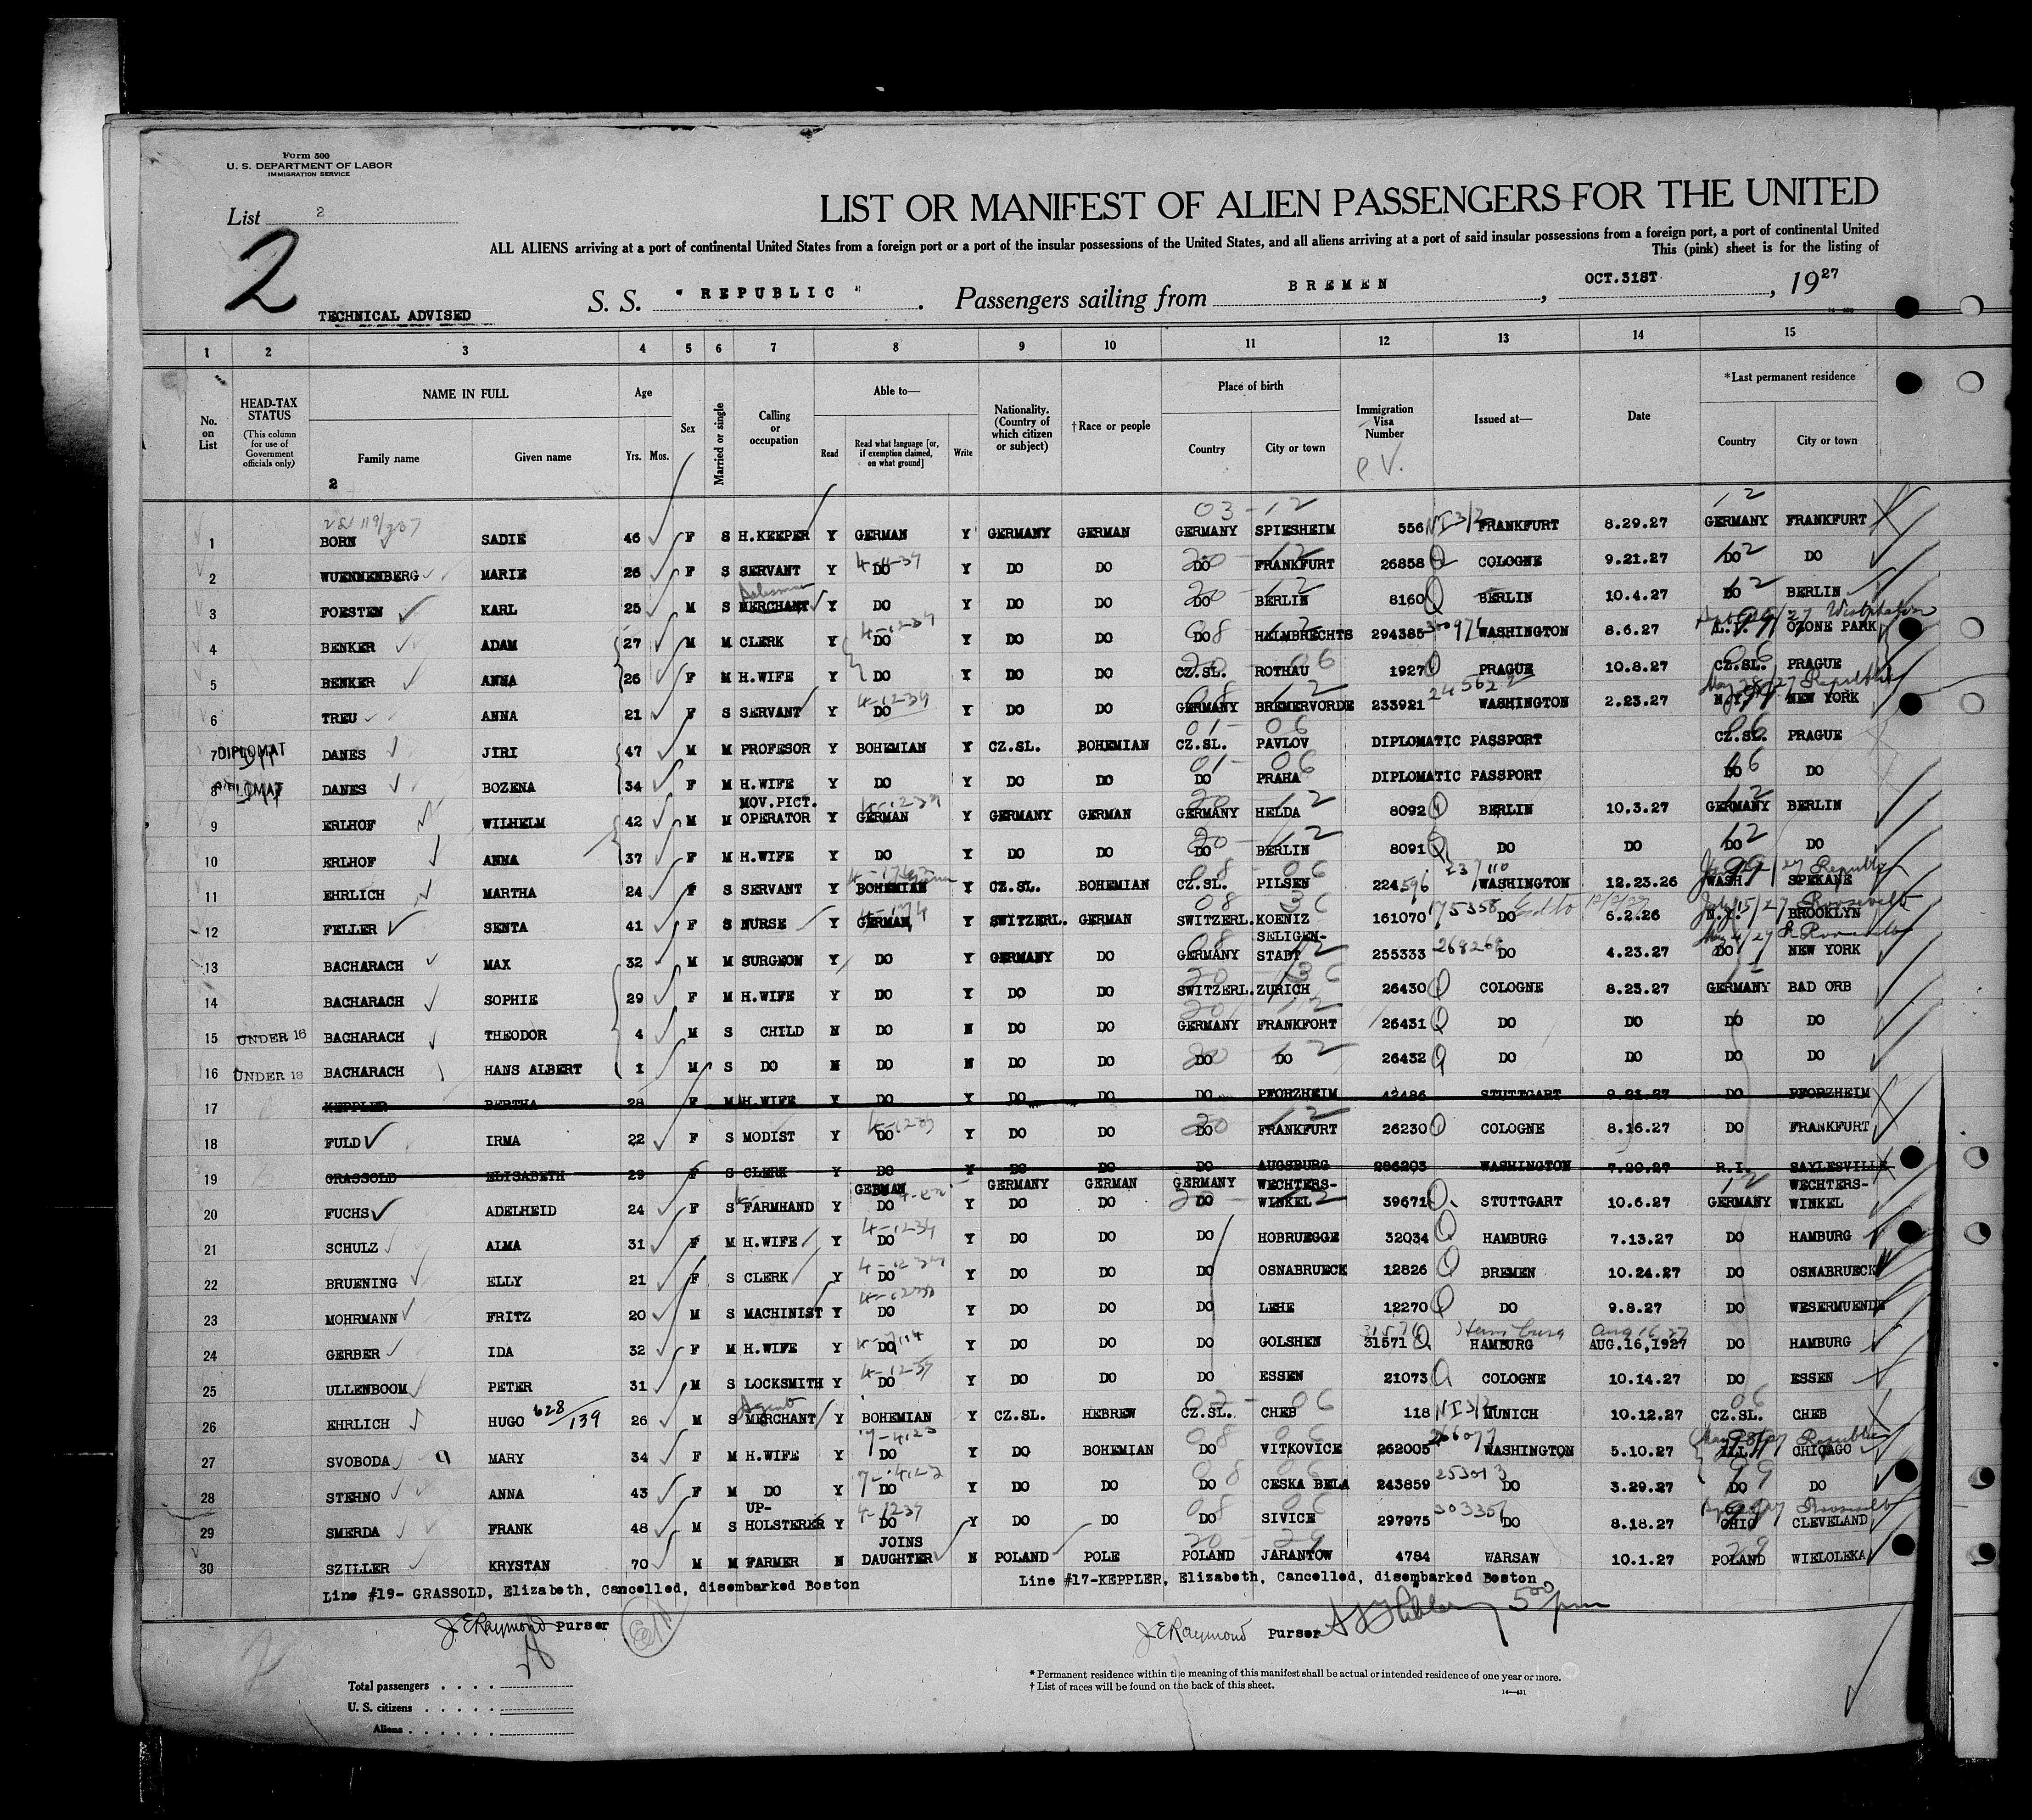 Form 500
U. S. DEPARTMENT OF LABOR
IMMIGRATION SERVICE
List 2
2
LIST OR MANIFEST OF ALIEN PASSENGERS FOR THE UNITED
ALL ALIENS arriving at a port of continental United States from a foreign port or a port of the insular possessions of the United States, and all aliens arriving at a port of said insular possessions from a foreign port, a port of continental United
This (pink) sheet is for the listing of
TECHNICAL ADVISED
S. S. "REPUBLIC". Passengers sailing from BREMEN, OCT.31ST, 1927
1 2 3 4 5 6 7 8 9 10 11 12 13 14 15
No. on List
HEAD-TAX STATUS (This column for use of Government officials only)
NAME IN FULL Family name Given name
Age Yrs. Mos.
Sex
Married or single
Calling or occupation
Able to— Read Read what language [or, if exemption claimed, on what ground] Write
Nationality. (Country of which citizen or subject)
†Race or people
Place of birth Country City or town
Immigration Visa Number
Issued at—
Date
*Last permanent residence Country City or town
2
1 BORN SADIE 46 F S H.KEEPER Y GERMAN Y GERMANY GERMAN GERMANY SPIESHEIM 556 FRANKFURT 8.29.27 GERMANY FRANKFURT
2 WUENNENBERG MARIE 26 F S SERVANT Y DO Y DO DO DO FRANKFURT 26858 COLOGNE 9.21.27 DO DO
3 FORSTEN KARL 25 M S MERCHANT Salesman Y DO Y DO DO DO BERLIN 8160 BERLIN 10.4.27 DO BERLIN
4 BENKER ADAM 27 M M CLERK Y DO Y DO DO DO HELMBRECHTS 294385 WASHINGTON 8.6.27 OZONE PARK
5 BENKER ANNA 26 F M H.WIFE Y DO Y DO DO CZ.SL. ROTHAU 1927 PRAGUE 10.8.27 CZ.SL. PRAGUE
6 TREU ANNA 21 F S SERVANT Y DO Y DO DO GERMANY BREMERVORDE 233921 WASHINGTON 2.23.27 N.Y. NEW YORK
7 DIPLOMAT DANES JIRI 47 M M PROFESOR Y BOHEMIAN Y CZ.SL. BOHEMIAN CZ.SL. PAVLOV DIPLOMATIC PASSPORT CZ.SL. PRAGUE
8 DIPLOMAT DANES BOZENA 34 F M H.WIFE Y DO Y DO DO DO PRAHA DIPLOMATIC PASSPORT DO DO
9 ERLHOF WILHELM 42 M M MOV.PICT. OPERATOR Y GERMAN Y GERMANY GERMAN GERMANY HELDA 8092 BERLIN 10.3.27 GERMANY BERLIN
10 ERLHOF ANNA 37 F M H.WIFE Y DO Y DO DO DO BERLIN 8091 DO DO DO DO
11 EHRLICH MARTHA 24 F S SERVANT Y BOHEMIAN Y CZ.SL. BOHEMIAN CZ.SL. PILSEN 224596 WASHINGTON 12.23.26 WASH. SPEKANE
12 FELLER SENTA 41 F S NURSE Y GERMAN Y SWITZERL. GERMAN SWITZERL. KOENIZ 161070 DO 6.2.26 N.Y. BROOKLYN
13 BACHARACH MAX 32 M M SURGEON Y DO Y GERMANY DO GERMANY SELIGEN-STADT 255333 DO 4.23.27 DO NEW YORK
14 BACHARACH SOPHIE 29 F M H.WIFE Y DO Y DO DO SWITZERL. ZURICH 26430 COLOGNE 8.23.27 GERMANY BAD ORB
15 UNDER 16 BACHARACH THEODOR 4 M S CHILD N DO N DO DO GERMANY FRANKFORT 26431 DO DO DO DO
16 UNDER 16 BACHARACH HANS ALBERT 1 M S DO N DO N DO DO DO DO 26432 DO DO DO DO
17 KEPPLER BERTHA 28 F M H.WIFE Y DO Y DO DO DO PFORZHEIM 42486 STUTTGART 9.21.27 DO PFORZHEIM
18 FULD IRMA 22 F S MODIST Y DO Y DO DO DO FRANKFURT 26230 COLOGNE 8.16.27 DO FRANKFURT
19 GRASSOLD ELISABETH 29 F S CLERK Y DO Y DO DO DO AUGSBURG 286203 WASHINGTON 7.20.27 R.I. SAYLESVILLE
20 FUCHS ADELHEID 24 F S FARMHAND Y GERMAN DO Y GERMANY DO GERMAN DO GERMANY DO WECHTERS-WINKEL 39671 STUTTGART 10.6.27 GERMANY WECHTERS-WINKEL
21 SCHULZ ALMA 31 F M H.WIFE Y DO Y DO DO DO HOBRUEGGE 32034 HAMBURG 7.13.27 DO HAMBURG
22 BRUENING ELLY 21 F S CLERK Y DO Y DO DO DO OSNABRUECK 12826 BREMEN 10.24.27 DO OSNABRUECK
23 MOHRMANN FRITZ 20 M S MACHINIST Y DO Y DO DO DO LEHE 12270 DO 9.8.27 DO WESERMUENDE
24 GERBER IDA 32 F M H.WIFE Y DO Y DO DO DO GOLSHEN 31571 HAMBURG AUG.16,1927 DO HAMBURG
25 ULLENBOOM PETER 31 M S LOCKSMITH Y DO Y DO DO DO ESSEN 21073 COLOGNE 10.14.27 DO ESSEN
26 EHRLICH HUGO 628/139 26 M S MERCHANT Agent Y BOHEMIAN Y CZ.SL. HEBREW CZ.SL. CHEB 118 MUNICH 10.12.27 CZ.SL. CHEB
27 SVOBODA MARY 34 F M H.WIFE Y DO Y DO BOHEMIAN DO VITKOVICE 262005 WASHINGTON 5.10.27 ILL. CHICAGO
28 STEHNO ANNA 43 F M DO Y DO Y DO DO DO CESKA BELA 243859 DO 3.29.27 DO DO
29 SMERDA FRANK 48 M S UP-HOLSTERER Y DO Y DO DO DO SIVICE 297975 DO 8.18.27 OHIO CLEVELAND
30 SZILLER KRYSTAN 70 M M FARMER N JOINS DAUGHTER N POLAND POLE POLAND JARANTOW 4784 WARSAW 10.1.27 POLAND WIELOLEKA
Line #19- GRASSOLD, Elizabeth, Cancelled, disembarked Boston Line #17-KEPPLER, Elizabeth, Cancelled, disembarked Boston
J.E.Raymond Purser J.E.Raymond Purser 5 00/pm
Total passengers
U. S. citizens
Aliens
* Permanent residence within the meaning of this manifest shall be actual or intended residence of one year or more.
† List of races will be found on the back of this sheet.
14—431